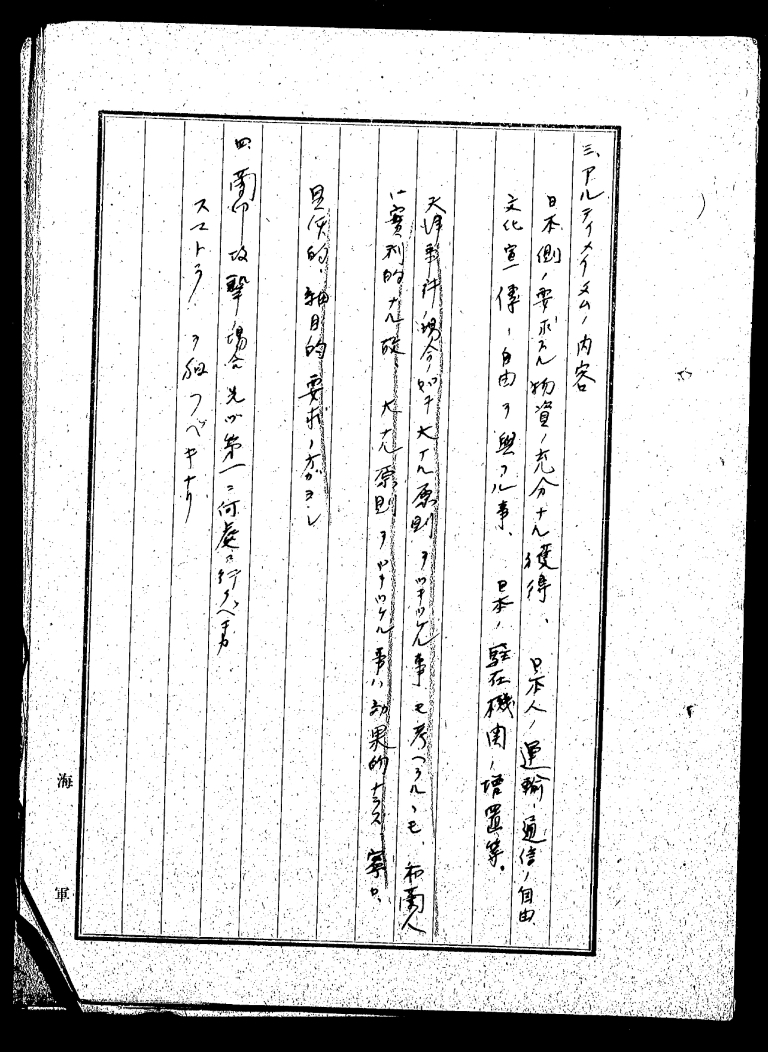 三、アルティメイタムノ内容
日本側ノ要求スル物資ノ充分ナル獲得、日本人ノ運輸、通信ノ自由
文化宣傳ノ自由ヲ與フル事、日本ノ駐在機関ノ増置等。
天津事件ノ場合ノ如キ大ナル原則ヲツキツケル事モ考ヘラルヽモ、和蘭人
ハ實利的ナル故、大ナル原則ヲツキツケル事ハ効果的ナラズ、寧ロ、
具体的、細目的要求ノ方ガヨシ
四、蘭印攻撃ノ場合先ヅ第一ニ何處ニ行クベキカ
スマトラヲ狙フベキナリ
海軍